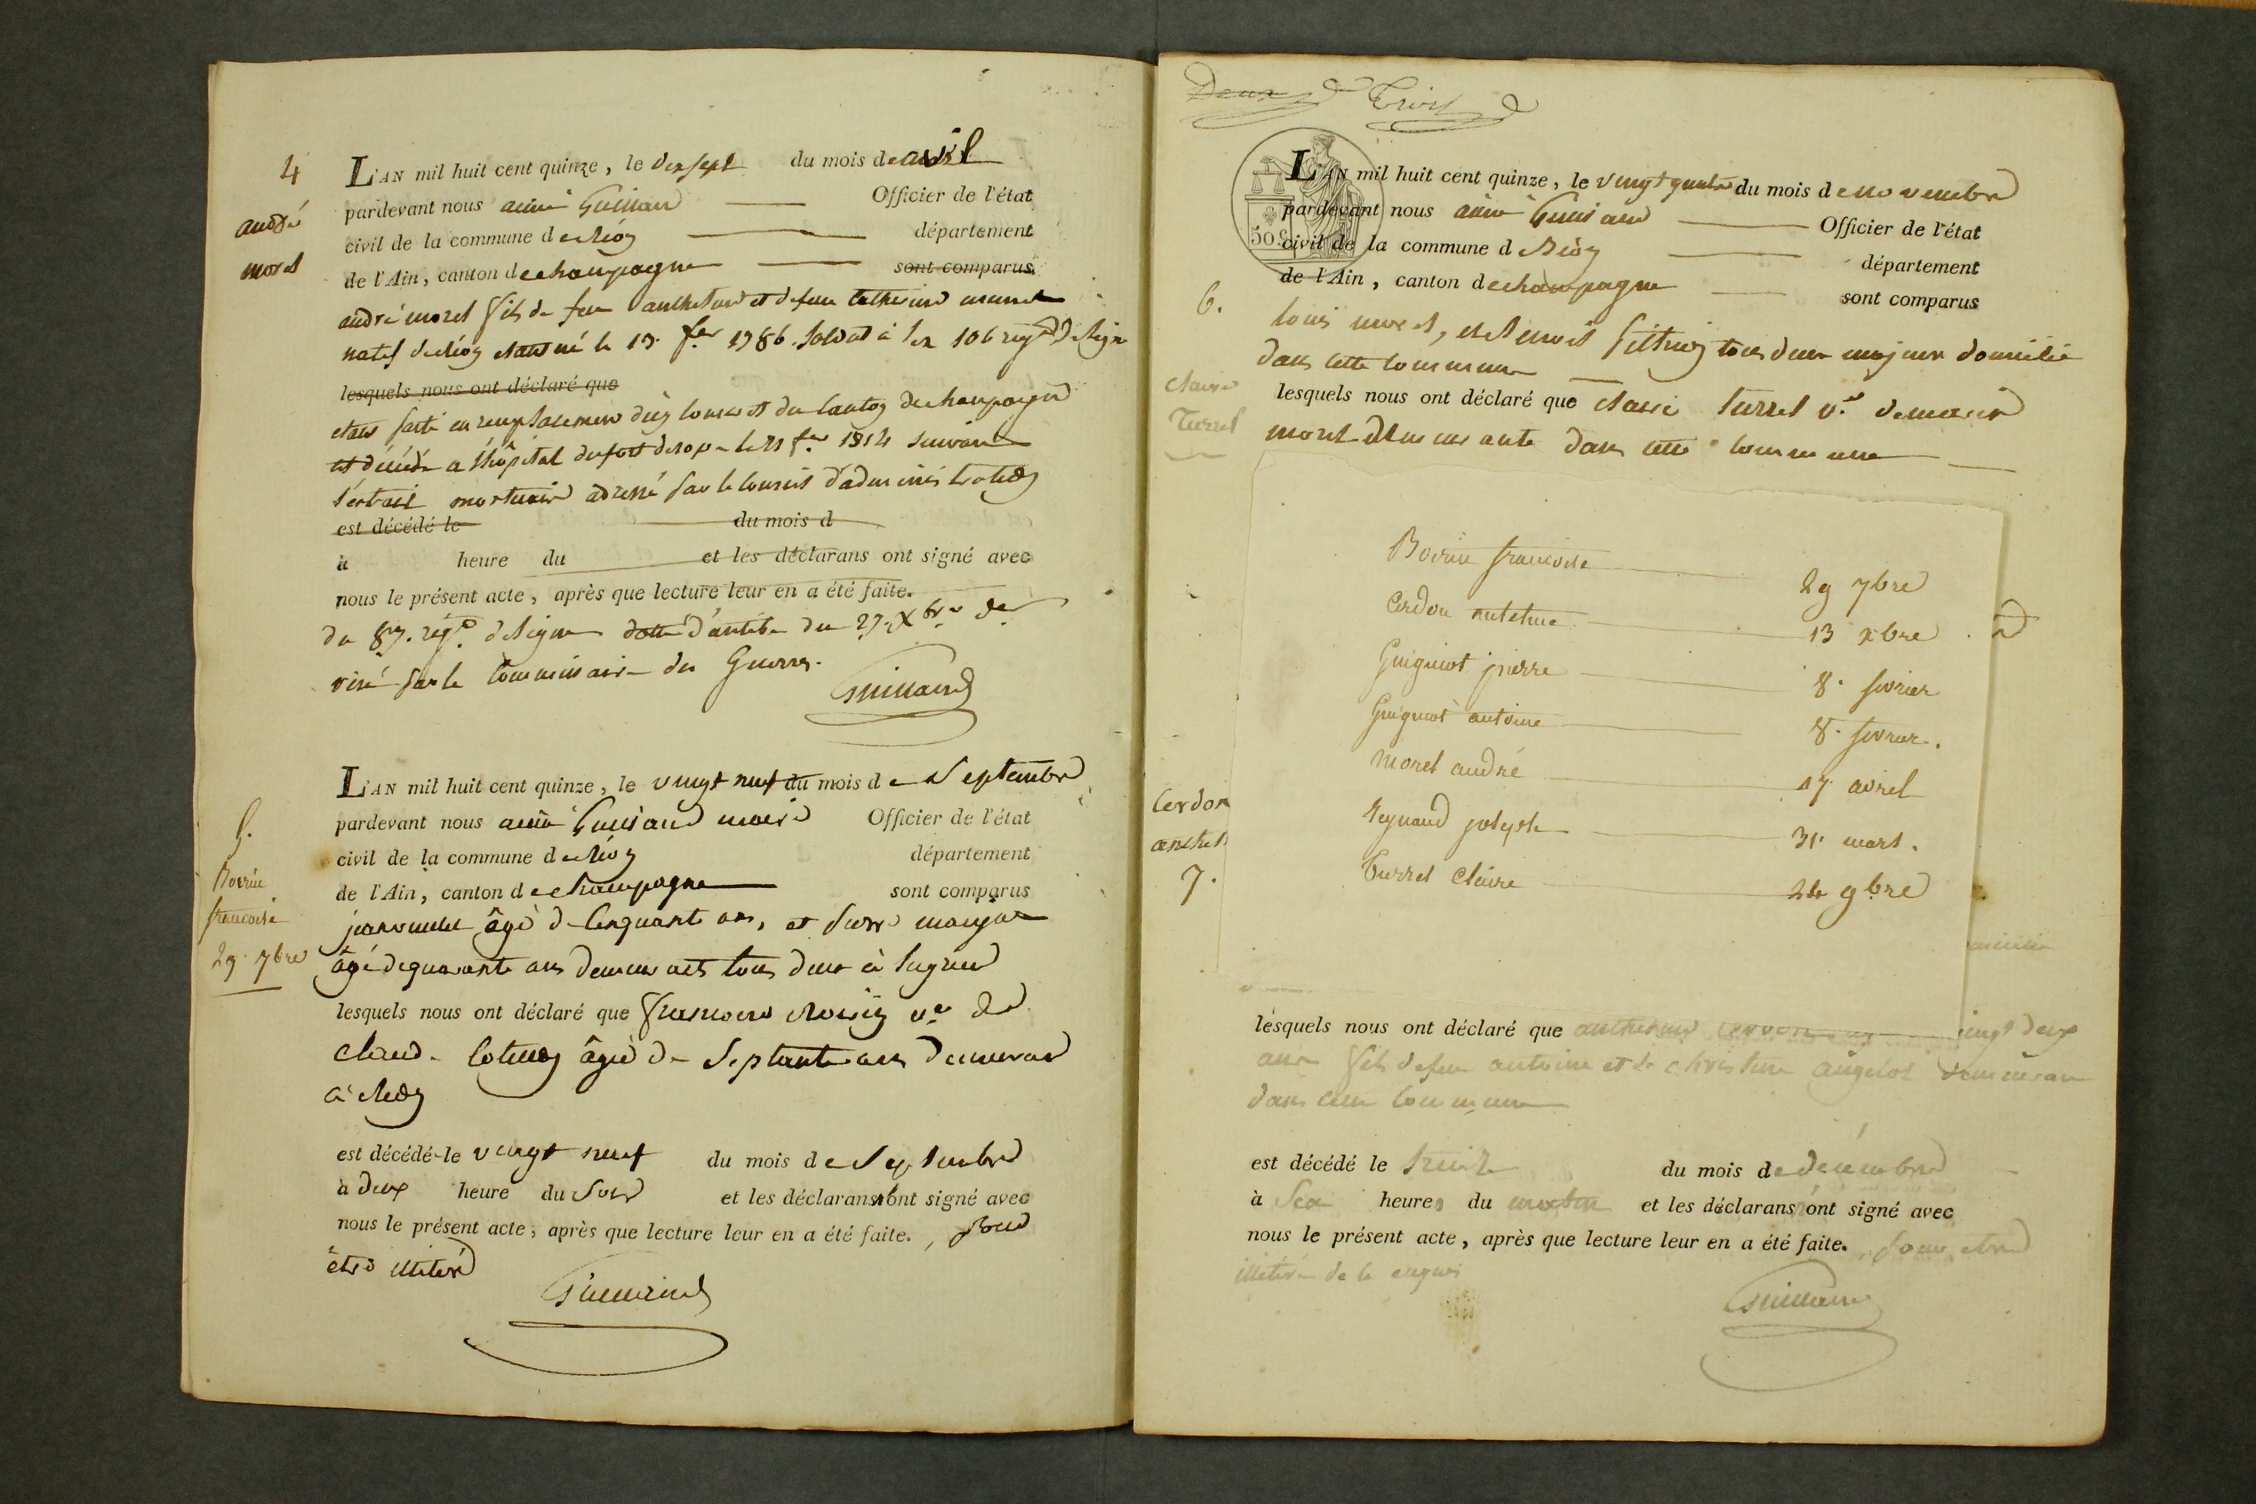 4
andré
morel
L'AN mil huit cent quinze, le dix sept du mois de avril
pardevant nous aimé Guilland Officier de l'état
civil de la commune de département
de l'Ain, canton de champagne sont comparus
andré morel fils de feu anthelme et de feue catherine
natif de étant né le 13 fer 1786. soldat à 106 regt de ligne
lesquels nous ont déclaré que
étant parti en remplacement du canton de champagne
est décédé a l'hôpital du fort de le 21 fer 1814 suivant
l'extrait mortuaire adressé par le conseil d'administration
est décédé le du mois d
à heure du et les déclarans ont signé avec
nous le présent acte, après que lecture leur en a été faite.
du 87. régt de ligne d'antibe du 27. Xbre der
visé par le commissaire des Guerres.
Guilland
L'AN mil huit cent quinze, le vingt neuf du mois de Septembre
pardevant nous aimé Guilland maire Officier de l'état
civil de la commune de département
de l'Ain, canton de champagne sont comparus
5.
françoise
29. 7bre
âgé de cinquante ans, et pierre
âgé de quarante ans demeurants tous deux à
lesquels nous ont déclaré que françoise ve de
claude âgée de septante ans demeurant
à
est décédé le vingt neuf du mois de Septembre
à deux heure du soir et les déclarans ont signé avec
nous le présent acte, après que lecture leur en a été faite. pour
être illitéré
Guilland
Deux Trois
50 c
L'AN mil huit cent quinze, le vingt quatre du mois de novembre
pardevant nous aimé Guilland Officier de l'état
civil de la commune d département
de l'Ain, canton de champagne sont comparus
6.
louis morel, et benoit tous deux majeur domicilié
dans cette commune
claire
Turrel
lesquels nous ont déclaré que claire turrel ve de
morel demeurante dans cette commune
françoise 29 7bre
Cerdon antelme 13 xbre
Guiguiot pierre 8. fevrier
Guiguiot antoine 8. fevrier.
Morel andré 17. avril
Reynaud joseph 31. mars.
Turrel Claire 24 9bre
Cerdon
anthel
7.
lesquels nous ont déclaré que anthelme cerdon vingt deux
ans fils de feu antoine et de christine demeurant
dans cette commune
est décédé le treize du mois de décembre
à six heures du matin et les déclarans ont signé avec
nous le présent acte, après que lecture leur en a été faite. pour etre
illitéré de le enquis
Guilland